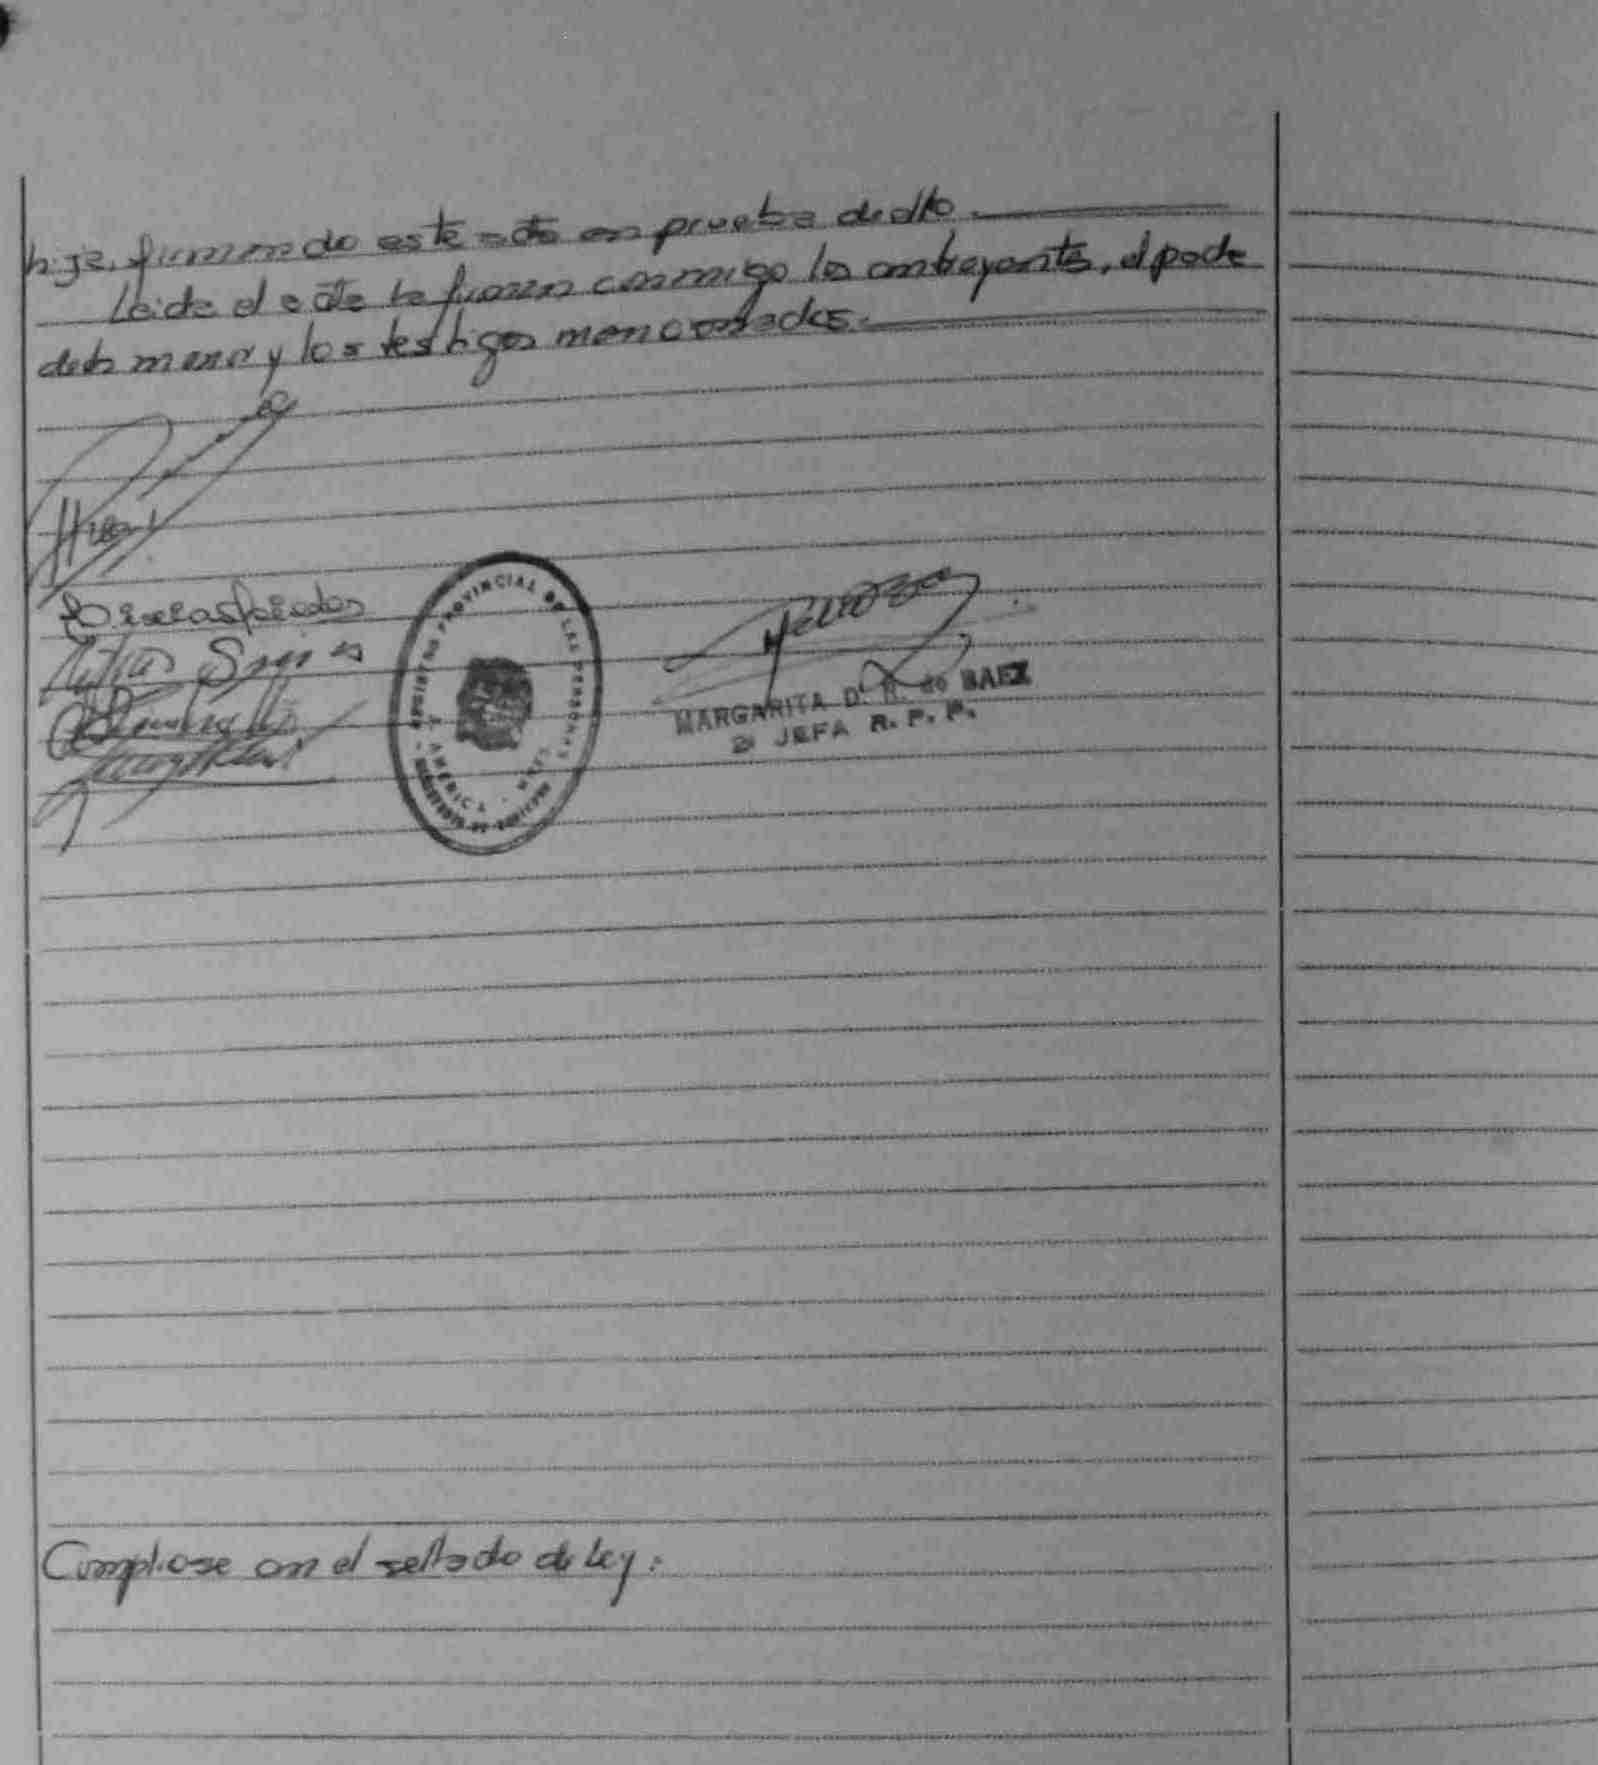 hija, firmando este acta en prueba de ello.
Leida el acta la firman conmigo los contrayentes, el padre
de la menor y los testigos mencionados.
REGISTRO PROVINCIAL DE LAS PERSONAS
AMERICA
MARGARITA D. R. de BAEZ
JEFA R. P. P.
Cumpliose con el sellado de ley: